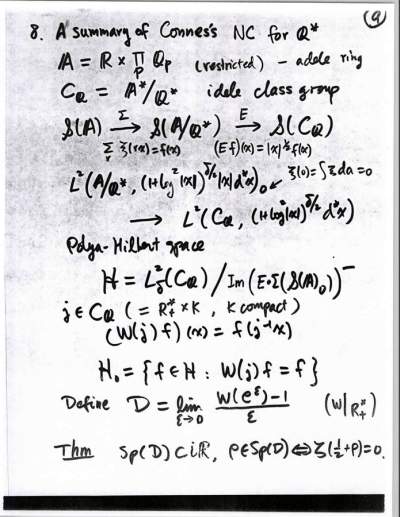 (9)
8. A summary of Connes's NC for Q*
A = R × ∏_p Q_p (restricted) – adele ring
C_Q = A*/Q* idele class group
S(A) →^Σ S(A/Q*) →^E S(C_Q)
Σ_r ξ(rx) = f(x) (Ef)(x) = |x|^½ f(x)
L²(A/Q*, (1+log²|x|)^{δ/2} |x| d*x)_0 ξ(0) = ∫ξ da = 0
→ L²(C_Q, (1+log²|x|)^{δ/2} d*x)
Polya-Hilbert space
H = L²_δ(C_Q) / Im(E∘Σ(S(A)_0))^–
j ∈ C_Q (= R*_+ × K, K compact)
(W(j)f)(x) = f(j^{-1}x)
H_0 = {f ∈ H : W(j)f = f}
Define D = lim_{ε→0} (W(e^ε)–1)/ε (W|R*_+)
Thm Sp(D) ⊂ iR, ρ ∈ Sp(D) ⇔ ζ(½+ρ) = 0.